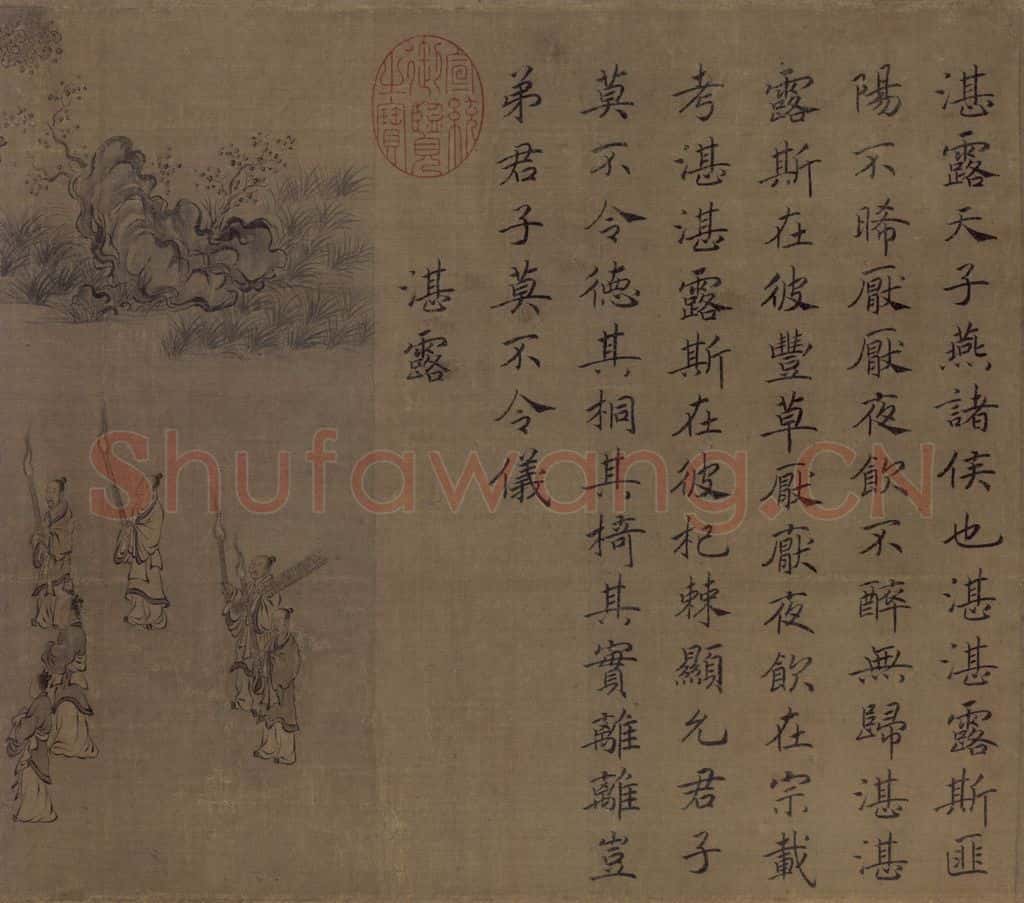 湛露天子燕諸侯也湛湛露斯匪
陽不晞厭厭夜飲不醉無歸湛湛
露斯在彼豐草厭厭夜飲在宗載
考湛湛露斯在彼杞棘顯允君子
莫不令德其桐其椅其實離離豈
弟君子莫不令儀
湛露
宣統御覽之寶
Shufawang.CN